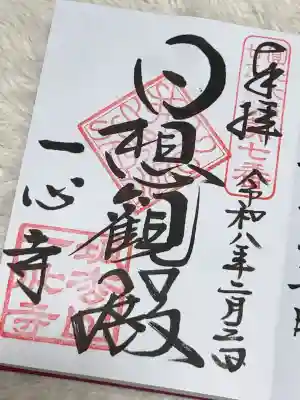 奉拝
令和八年二月三日
日想観殿
一心寺